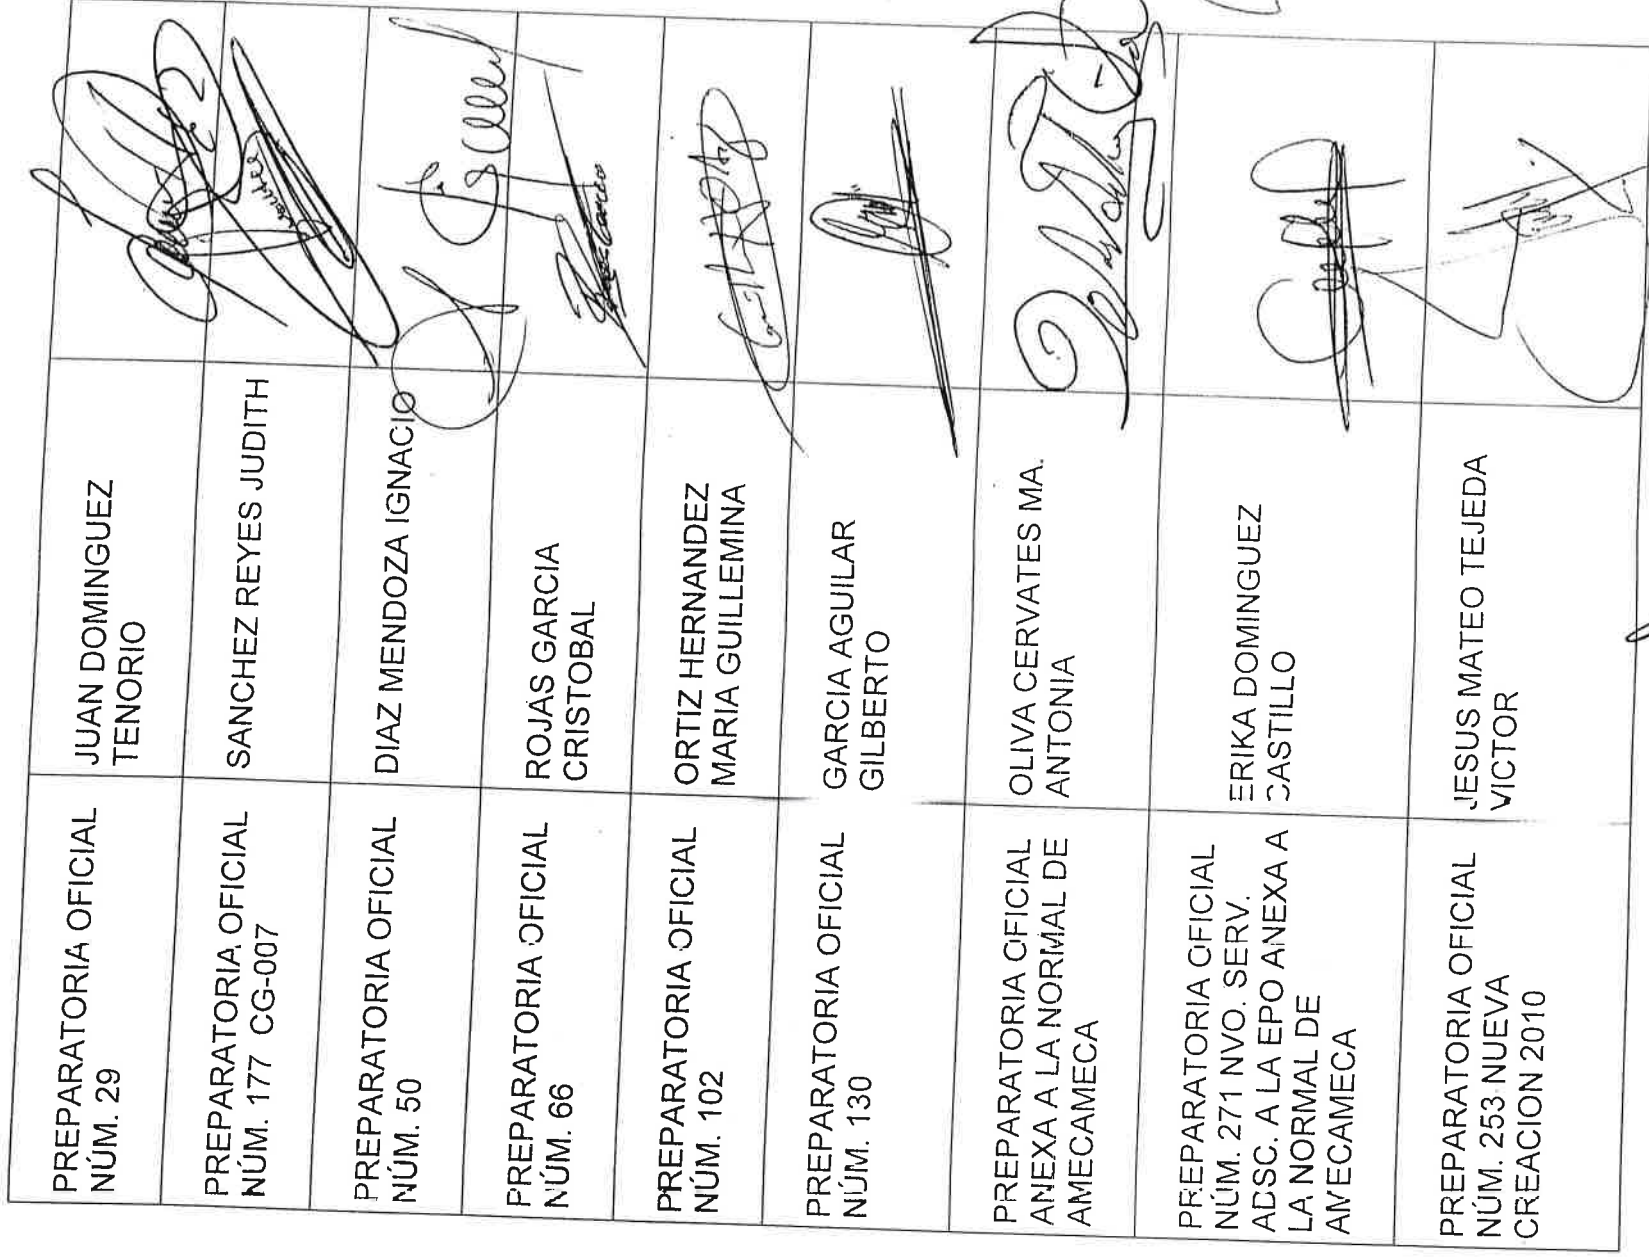 PREPARATORIA OFICIAL
NÚM. 29
JUAN DOMINGUEZ
TENORIO
PREPARATORIA OFICIAL
NÚM. 177 CG-007
SANCHEZ REYES JUDITH
PREPARATORIA OFICIAL
NÚM. 50
DIAZ MENDOZA IGNACIO
PREPARATORIA OFICIAL
NÚM. 66
ROJAS GARCIA
CRISTOBAL
PREPARATORIA OFICIAL
NÚM. 102
ORTIZ HERNANDEZ
MARIA GUILLEMINA
PREPARATORIA OFICIAL
NÚM. 130
GARCIA AGUILAR
GILBERTO
PREPARATORIA OFICIAL
ANEXA A LA NORMAL DE
AMECAMECA
OLIVA CERVATES MA.
ANTONIA
PREPARATORIA OFICIAL
NÚM. 271 NVO. SERV.
ADSC. A LA EPO ANEXA A
LA NORMAL DE
AMECAMECA
ERIKA DOMINGUEZ
CASTILLO
PREPARATORIA OFICIAL
NÚM. 253 NUEVA
CREACION 2010
JESUS MATEO TEJEDA
VICTOR